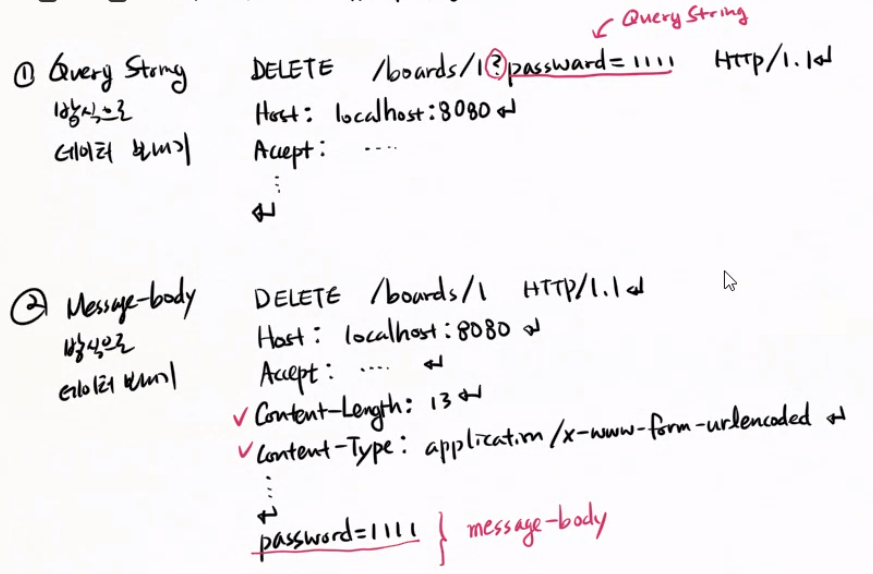 Query String
① Query String DELETE /boards/1?passward=1111 HTTP/1.1↵
방식으로 Host: localhost:8080 ↵
데이터 보내기 Accept: ....
⋮
↵
② Message-body DELETE /boards/1 HTTP/1.1 ↵
방식으로 Host: localhost:8080 ↵
데이터 보내기 Accept: .... ↵
✓ Content-Length: 13 ↵
✓ Content-Type: application/x-www-form-urlencoded ↵
⋮
↵
password=1111 } message-body